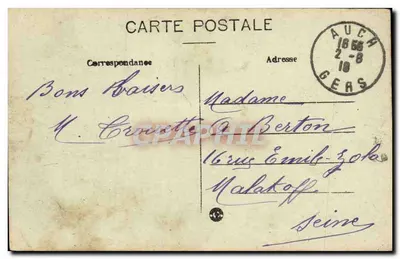 CARTE POSTALE
Correspondance
Adresse
AUCH
18 55
2 - 8
19
GERS
Bons baisers
M.
Madame
A. Berton
16 rue Emile-Zola
Malakoff
Seine